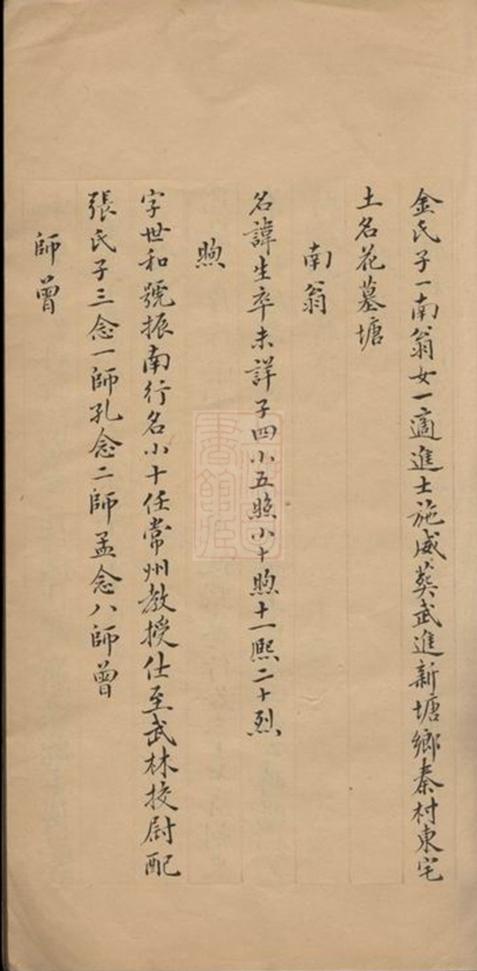 金氏子一南翁女一適進士施威葬武進新塘鄉秦村東宅
土名花墓塘
南翁
名諱生卒未詳子四小五照小十煦十一熙二十烈
煦
字世和號振南行名小十任常州教授仕至武林校尉配
張氏子三念一師孔念二師孟念八師曾
師曾